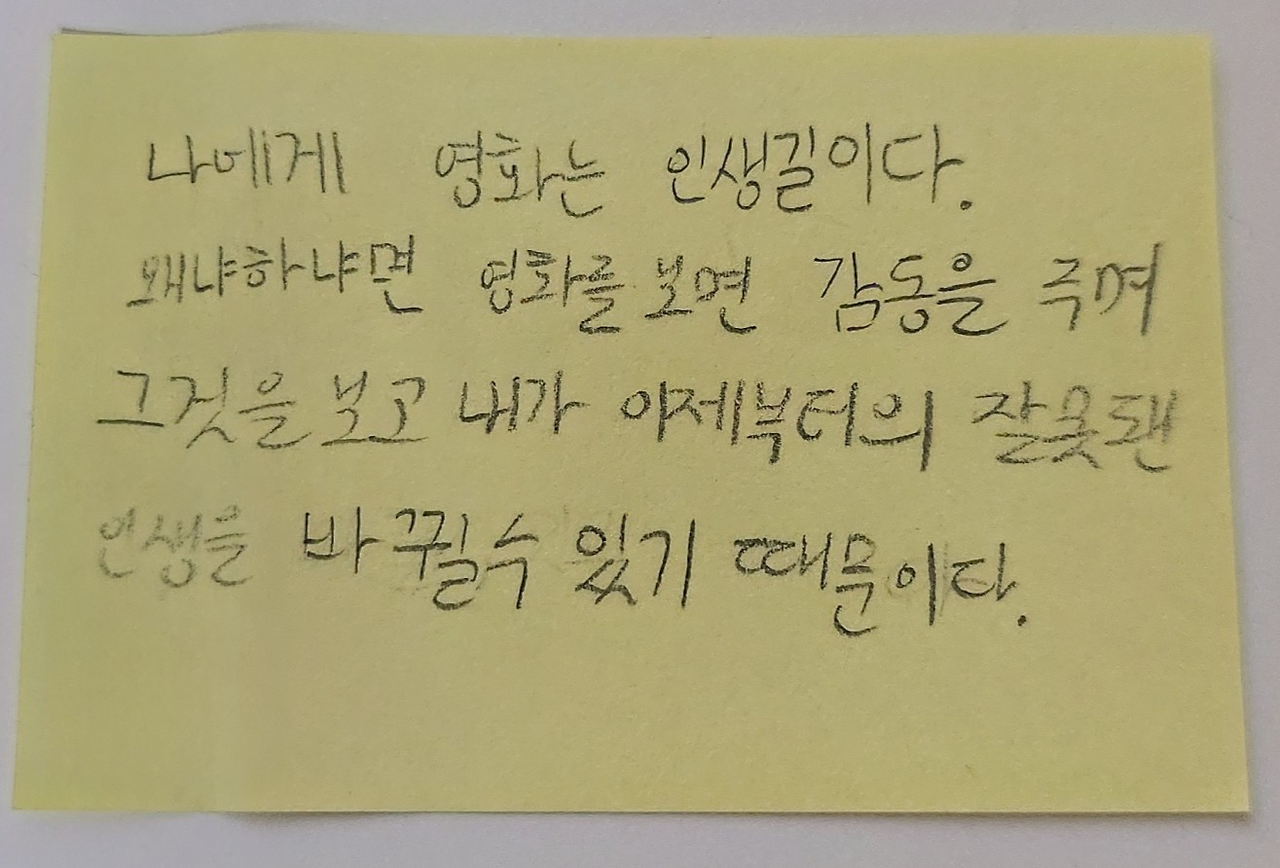 나에게 영화는 인생길이다.
왜냐하냐면 영화를 보면 감동을 주며
그것을 보고 내가 아제부터의 잘못됀
인생을 바꿜수 있기 때문이다.